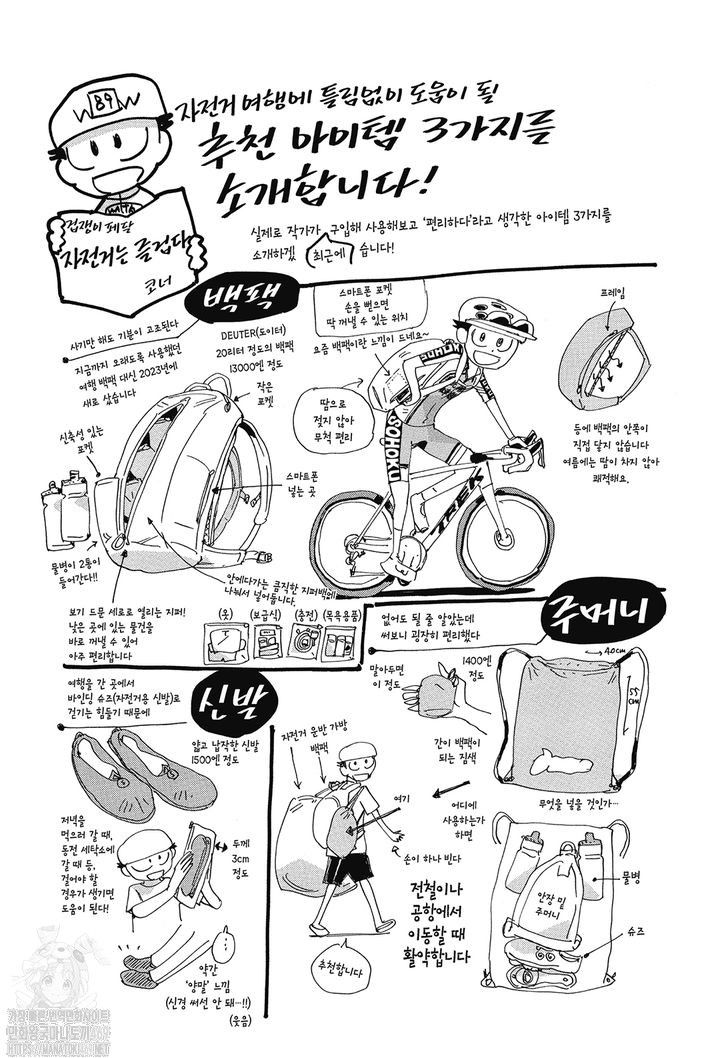 자전거 여행에 틀림없이 도움이 될
추천 아이템 3가지를
소개합니다!
89
겁쟁이 페달
'자전거는 즐겁다'
코너
실제로 작가가 구입해 사용해보고 '편리하다'라고 생각한 아이템 3가지를
소개하겠 습니다!
최근에
백팩
사기만 해도 기분이 고조된다
지금까지 오래도록 사용했던
여행 백팩 대신 2023년에
새로 샀습니다
DEUTER(도이터)
20리터 정도의 백팩
13000엔 정도
작은
포켓
신축성 있는
포켓
스마트폰
넣는 곳
물병이 2통이
들어간다!!
안에다가는 큼직한 지퍼백에
나눠서 넣어둡니다.
보기 드문 세로로 열리는 지퍼!
낮은 곳에 있는 물건을
바로 꺼낼 수 있어
아주 편리합니다
(옷)
(보급식)
(충전)
(목욕용품)
스마트폰 포켓
손을 뻗으면
딱 꺼낼 수 있는 위치
요즘 백팩이란 느낌이 드네요~
땀으로
젖지 않아
무척 편리
SOHOKU
SOHOKU
TREK
프레임
등에 백팩의 안쪽이
직접 닿지 않습니다
여름에는 땀이 차지 않아
쾌적해요.
주머니
없어도 될 줄 알았는데
써보니 굉장히 편리했다
말아두면
이 정도
1400엔
정도
간이 백팩이
되는 짐색
40cm
55cm
무엇을 넣을 것인가…
물병
안장 밑
주머니
슈즈
어디에
사용하는가
하면
자전거 운반 가방
백팩
여기
손이 하나 빈다
전철이나
공항에서
이동할 때
활약합니다
추천합니다
신발
여행을 간 곳에서
바인딩 슈즈(자전거용 신발)로
걷기는 힘들기 때문에
얇고 납작한 신발
1500엔 정도
저녁을
먹으러 갈 때,
동전 세탁소에
갈 때 등,
걸어야 할
경우가 생기면
도움이 된다!
두께
3cm
정도
…
약간
'양말' 느낌
(신경 써선 안 돼…!!)
(웃음)
HTTPS://MANATOKI